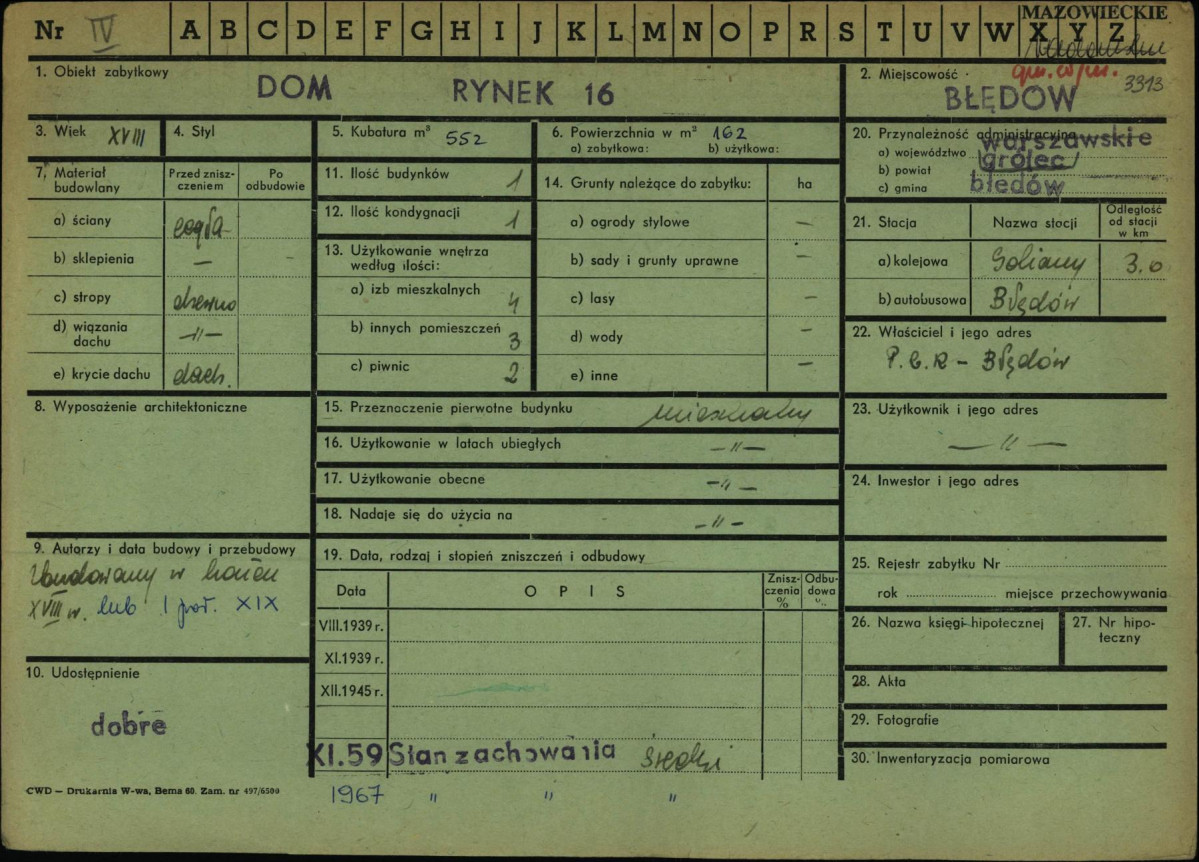 Nr IV A B C D E F G H I J K L M N O P R S T U V W X Y Z MAZOWIECKIE
1. Obiekt zabytkowy
DOM RYNEK 16
2. Miejscowość
3313
BŁĘDÓW
3. Wiek XVIII
4. Styl
5. Kubatura m³ 552
6. Powierzchnia w m² 162
a) zabytkowa: b) użytkowa:
7. Materiał budowlany
Przed zniszczeniem
Po odbudowie
a) ściany cegła
b) sklepienia —
c) stropy drewno
d) wiązania dachu —"—
e) krycie dachu dach.
11. Ilość budynków 1
12. Ilość kondygnacji 1
13. Użytkowanie wnętrza według ilości:
a) izb mieszkalnych 4
b) innych pomieszczeń 3
c) piwnic 2
14. Grunty należące do zabytku: ha
a) ogrody stylowe —
b) sady i grunty uprawne —
c) lasy —
d) wody —
e) inne —
20. Przynależność administracyjna
a) województwo warszawskie
b) powiat grójec
c) gmina błedów
21. Stacja Nazwa stacji Odległość od stacji w km
a) kolejowa Goliany 3.0
b) autobusowa Błędów
22. Właściciel i jego adres
Błędów
8. Wyposażenie architektoniczne
15. Przeznaczenie pierwotne budynku mieszkalny
16. Użytkowanie w latach ubiegłych —"—
17. Użytkowanie obecne —"—
18. Nadaje się do użycia na —"—
23. Użytkownik i jego adres
—"—
24. Inwestor i jego adres
9. Autorzy i data budowy i przebudowy
Zbudowany w końcu
XVIII w. lub I poł. XIX
10. Udostępnienie
dobre
19. Data, rodzaj i stopień zniszczeń i odbudowy
Data OPIS Zniszczenia % Odbudowa %
VIII.1939 r.
XI.1939 r.
XII.1945 r.
XI.59 Stan zachowania średni
1967 " " "
25. Rejestr zabytku Nr
rok miejsce przechowywania
26. Nazwa księgi hipotecznej
27. Nr hipoteczny
28. Akta
29. Fotografie
30. Inwentaryzacja pomiarowa
CWD — Drukarnia W-wa, Bema 60. Zam. nr 497/6500